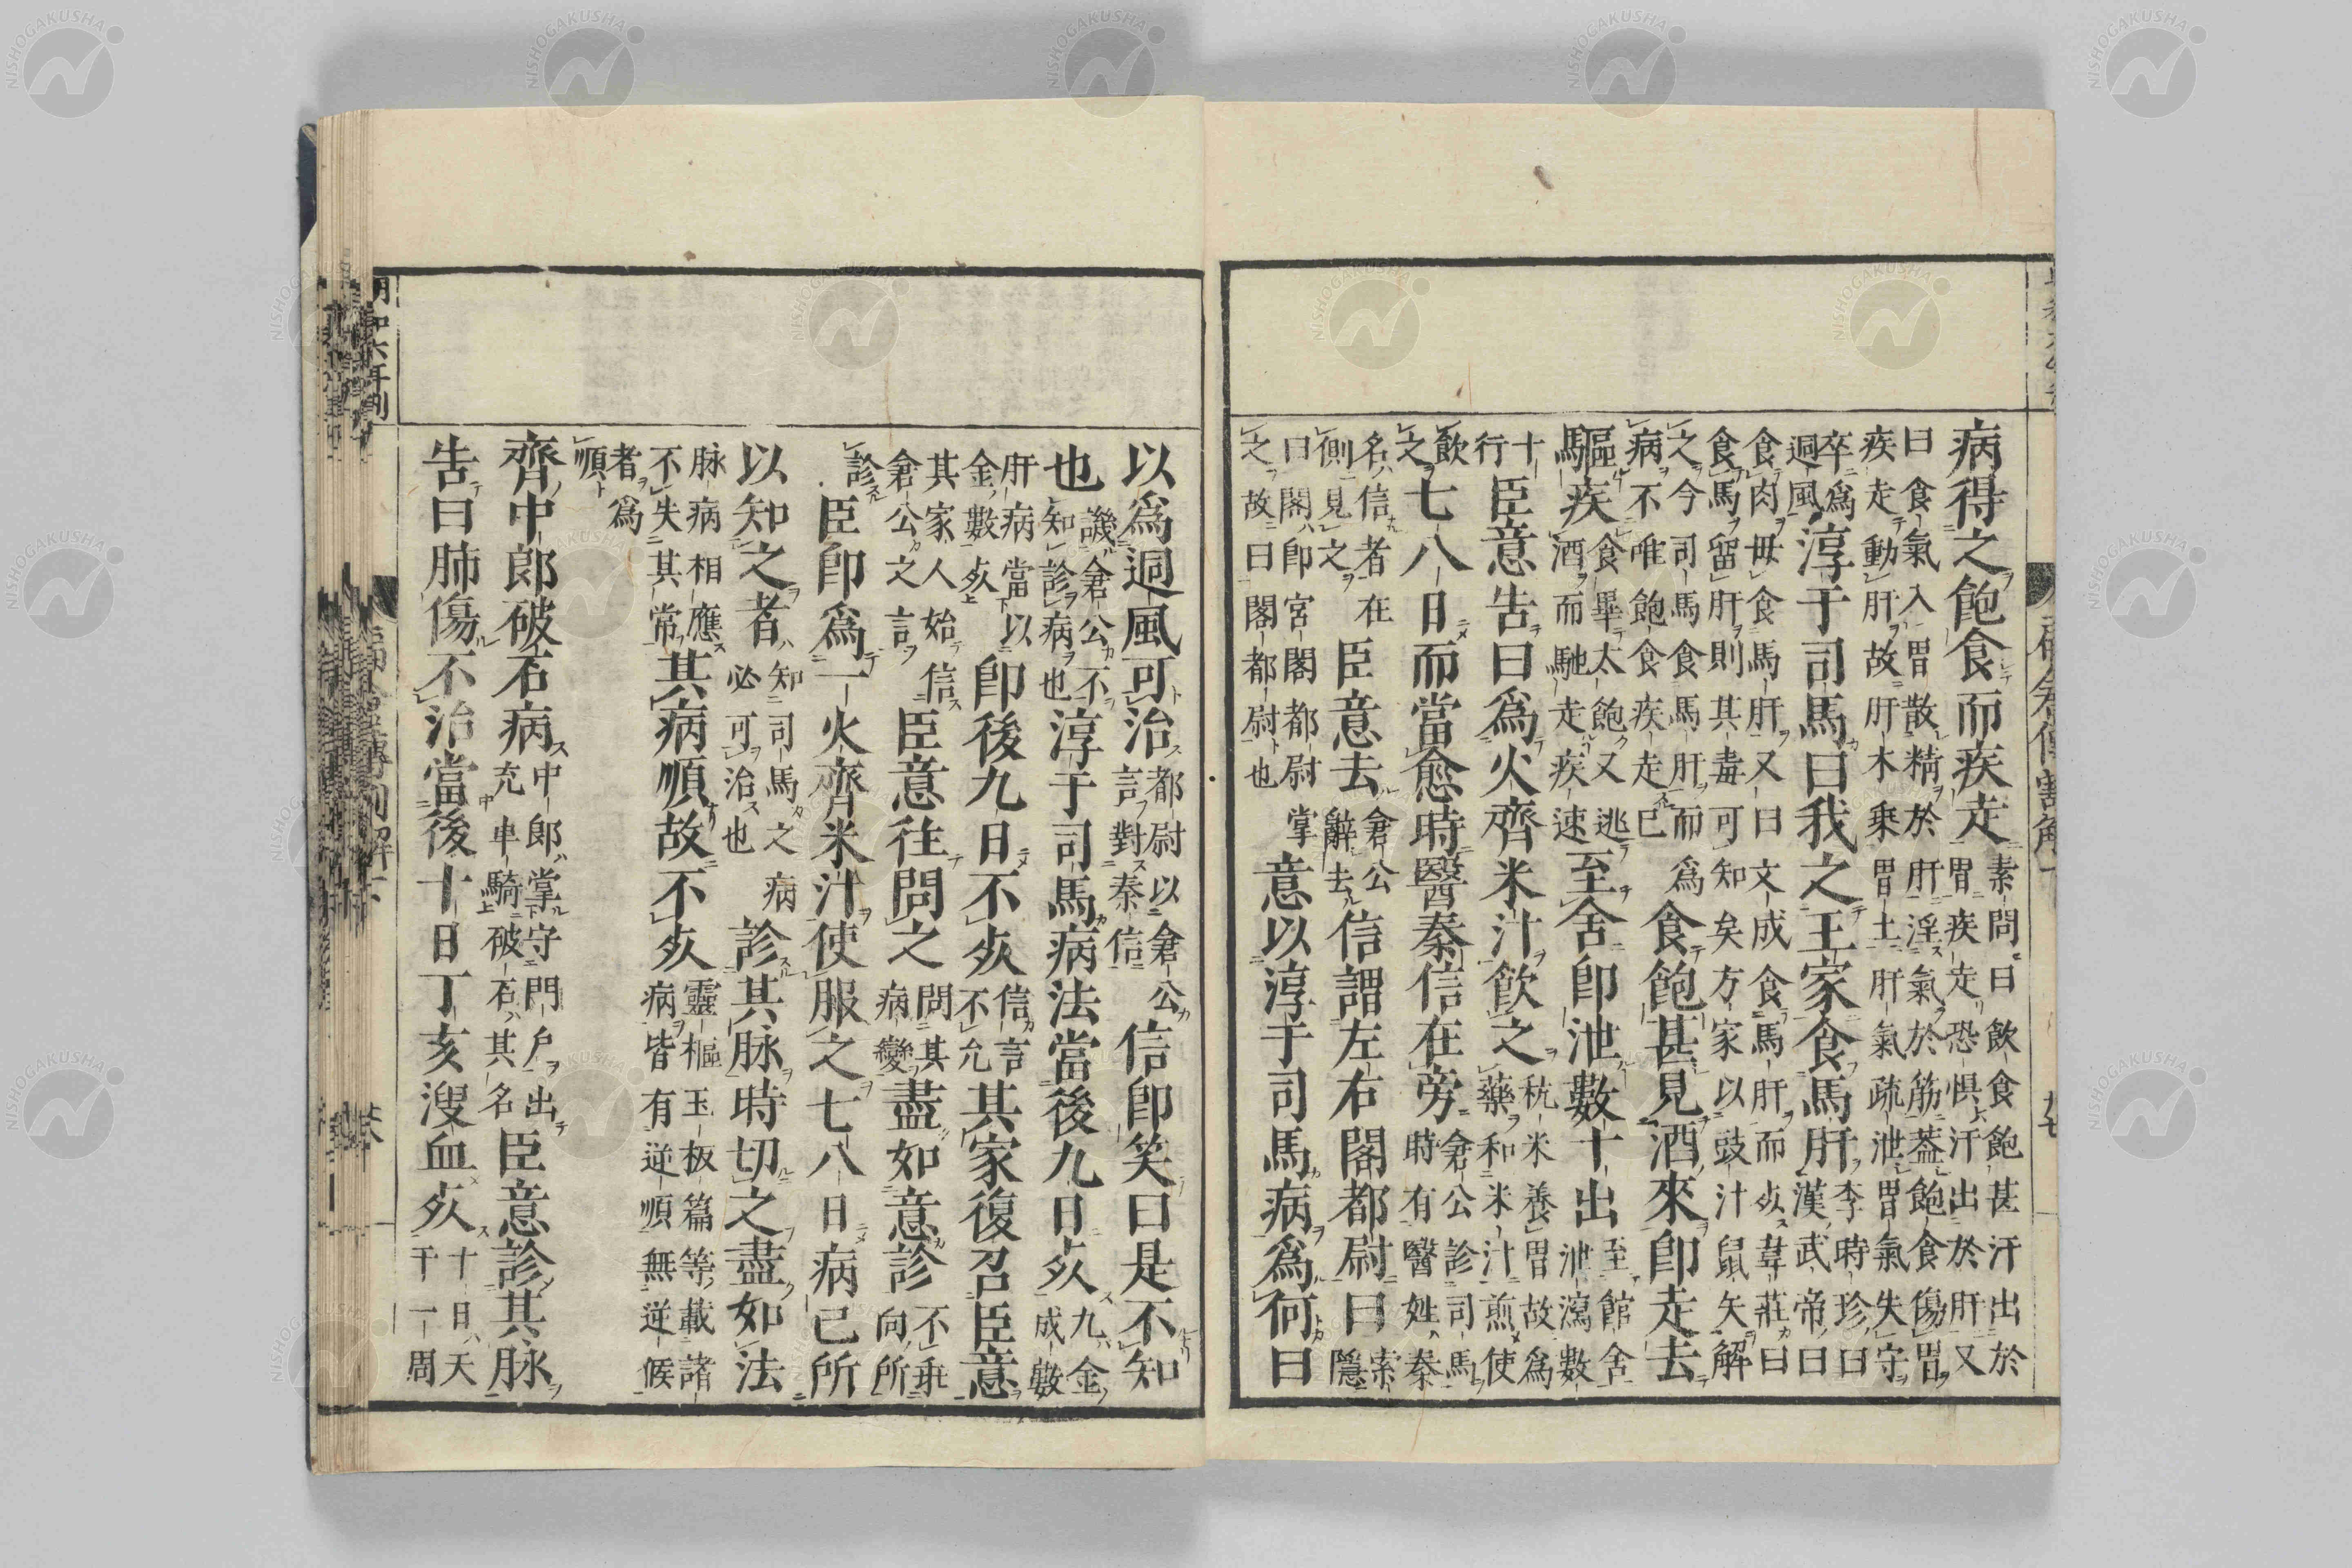 病得之飽食而疾走素問曰飲食飽甚汗出於胃疾走恐惧汗出於肝又
曰食氣入胃散精於肝淫氣於筋蓋飽食傷胃疾走動肝故肝木乗胃土肝氣疏泄胃氣失守
卒為迵風淳于司馬曰我之王家食馬肝李時珍曰漢武帝曰
食肉毋食馬肝又曰文成食馬肝而死韋莊曰食馬留肝則其毒可知矣方家以豉汁鼠矢解
之今司馬食馬肝而為病不唯飽食疾走已食飽甚見酒來即走去
驅疾食畢太飽又逃酒而馳走疾速至舍即泄數十出至館舍泄瀉數
十行臣意告曰為火齊米汁飲之秔米養胃故為藥和米汁煎使
飲之七八日而當愈時醫秦信在旁倉公診司馬時有醫姓秦
名信者在側見文臣意去倉公辭去信謂左右閣都尉曰索隱
曰閣即宮閣都尉掌之故曰閣都尉也意以淳于司馬病為何曰
以為迵風可治都尉以倉公言對秦信信即笑曰是不知
也譏倉公不知診病也淳于司馬病法當後九日死九金成數
肝病當以金數死即後九日不死信言不允其家復召臣意
其家人始信倉公文言臣意往問之問其病變盡如意診不乖向所
診臣即為一火齊米汁使服之七八日病已所
以知之者知司馬之病必可治也診其脉時切之盡如法
脉病相應不失其常其病順故不死靈樞玉板篇等載諸病皆有逆順無逆候
者為順
齊中郎破石病中郎掌守門戸出充車騎破石其名臣意診其脉
告曰肺傷不治當後十日丁亥溲血死十日天干一周
明和六年刊
NISHOGAKUSHA